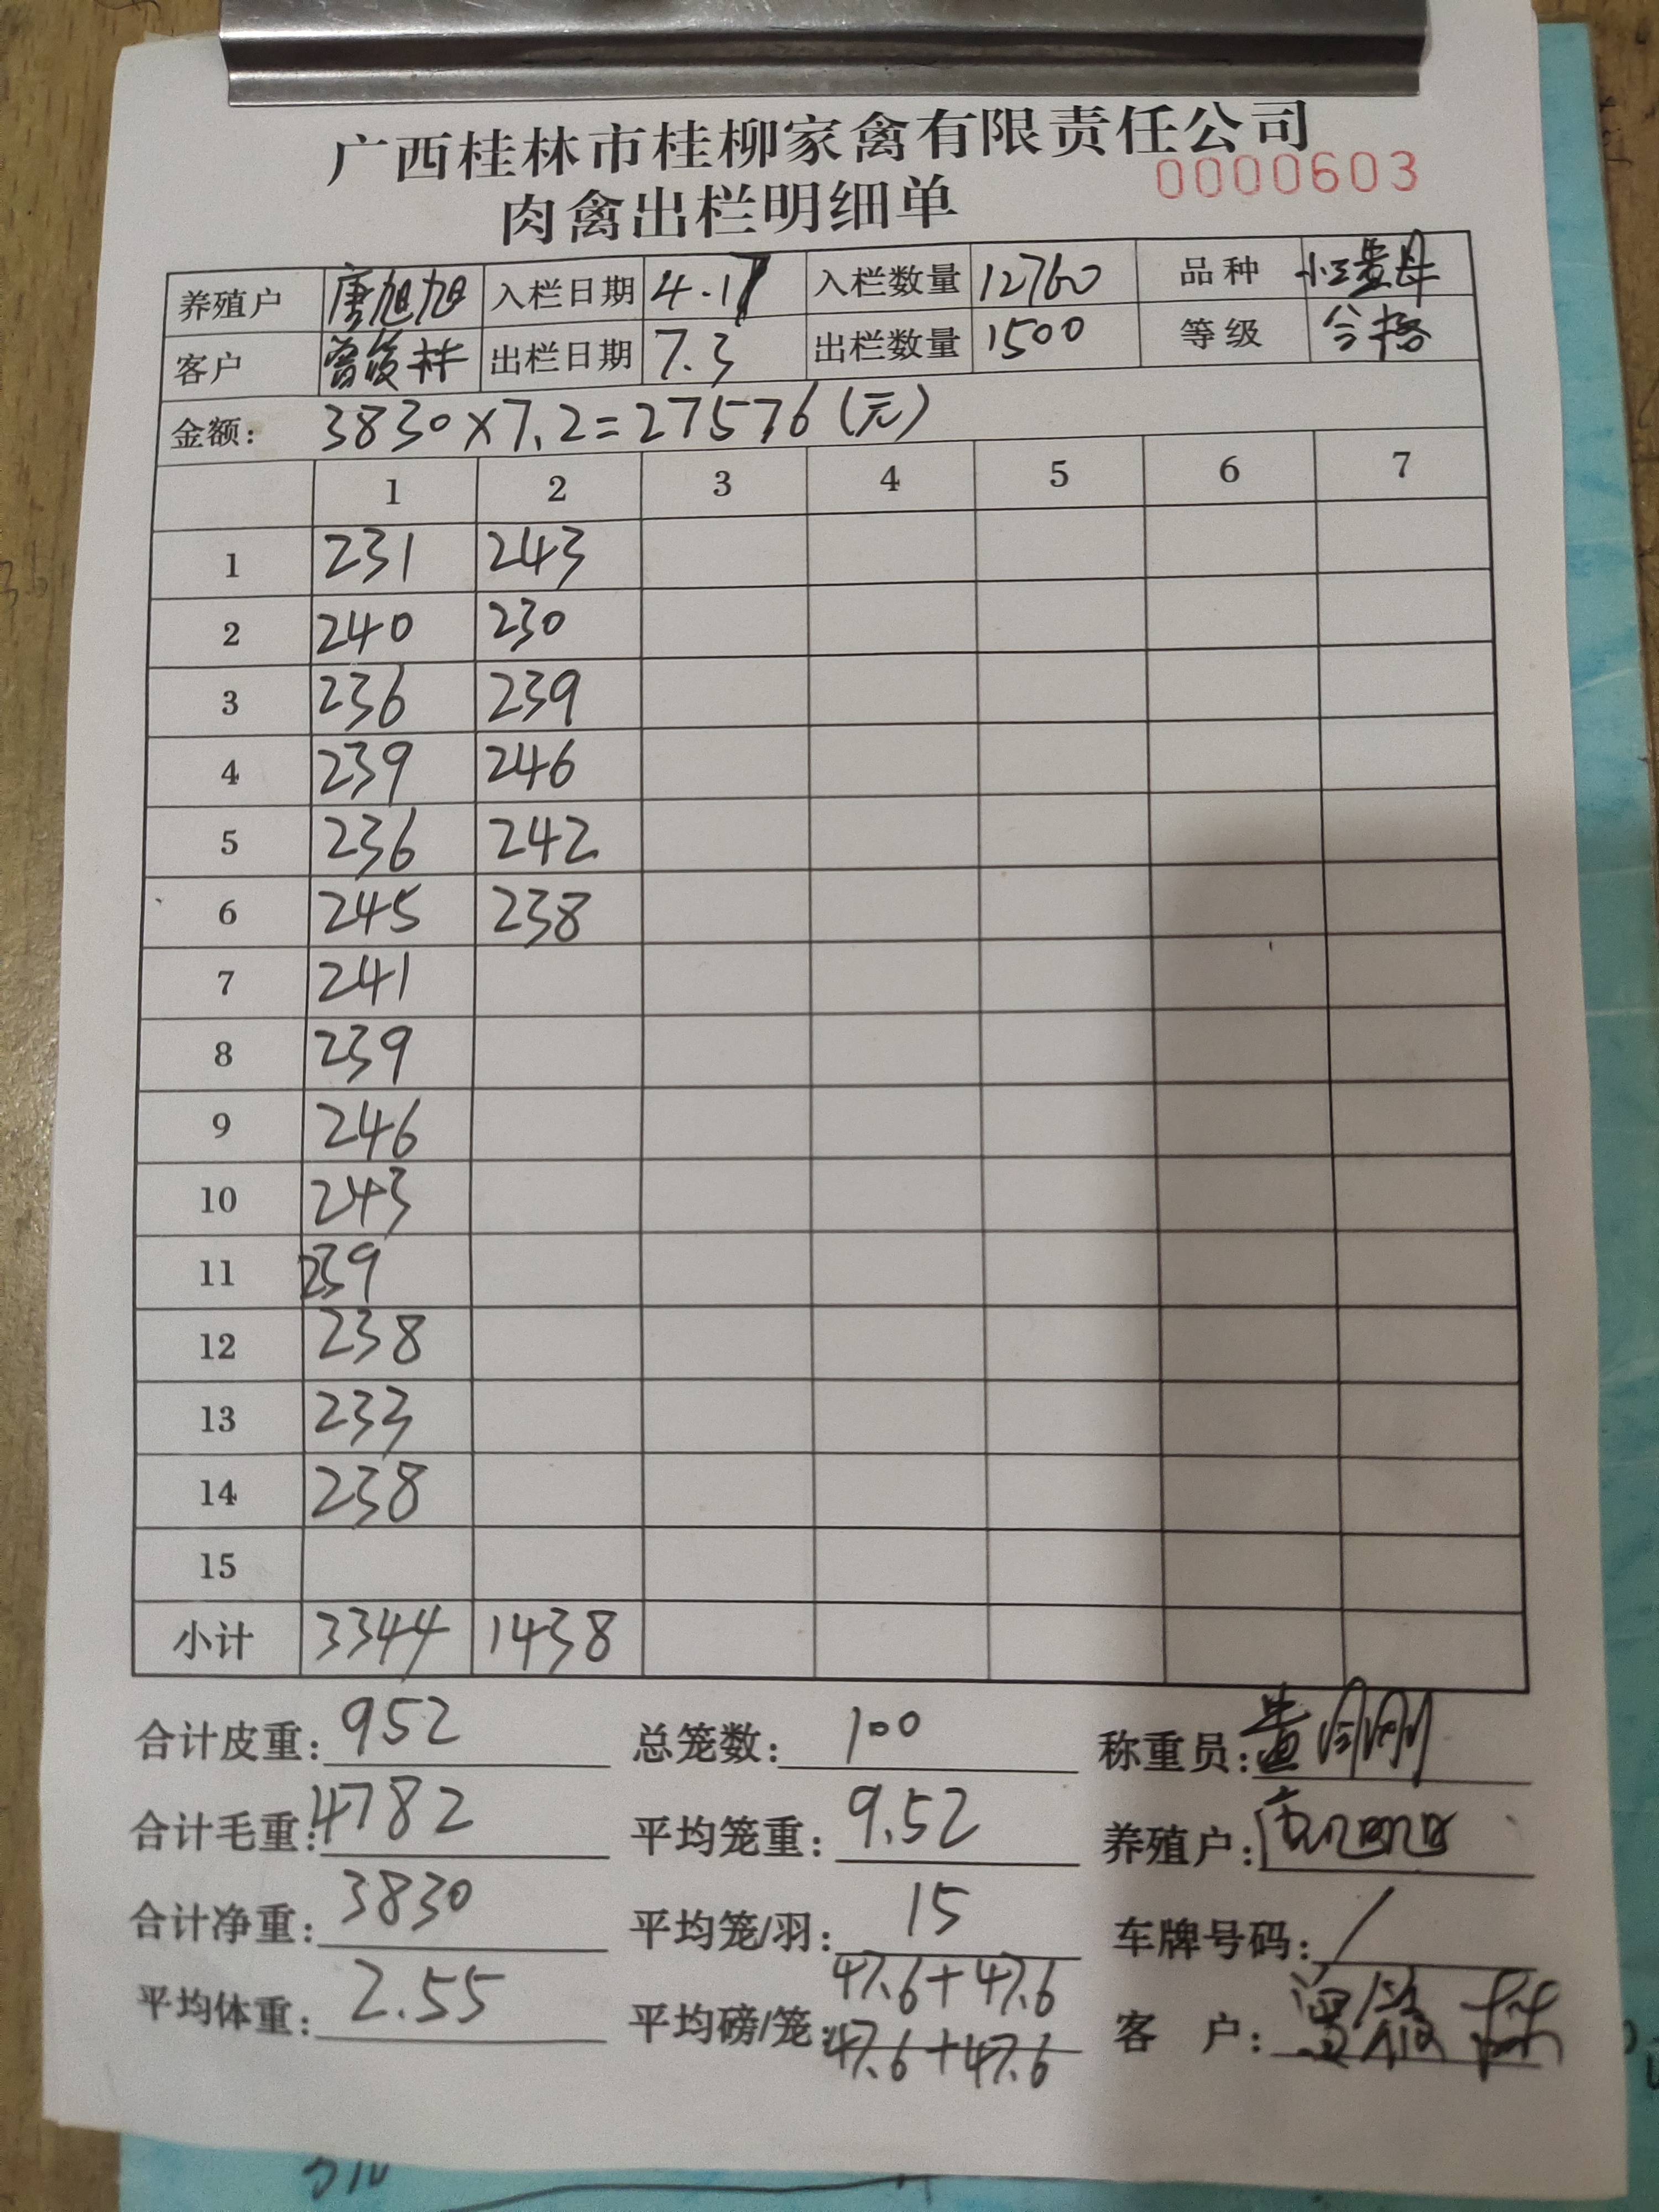 广西桂林市桂柳家禽有限责任公司
0000603
肉禽出栏明细单
养殖户 唐旭旭 入栏日期 4.17 入栏数量 12760 品种
客户 曾俊林 出栏日期 7.3 出栏数量 1500 等级 合格
金额: 3830×7.2=27576(元)
1 2 3 4 5 6 7
1 231 243
2 240 230
3 236 239
4 239 246
5 236 242
6 245 238
7 241
8 239
9 246
10 243
11 239
12 238
13 233
14 238
15
小计 3344 1438
合计皮重: 952 总笼数: 100 称重员: 黄
合计毛重: 4782 平均笼重: 9.52 养殖户: 唐旭旭
合计净重: 3830 平均笼/羽: 15 车牌号码: /
平均体重: 2.55 平均磅/笼: 47.6+47.6
47.6+47.6 客 户: 曾俊林